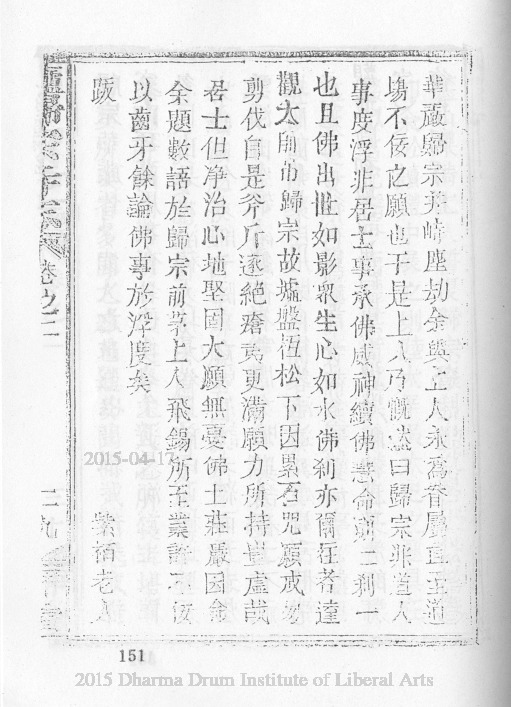 華嚴歸宗並峙塵劫余與上人永為眷屬直至道
場不佞之願也于是上人乃慨然曰歸宗非道人
事度浮非居士事承佛威神續佛慧命則二剎一
也且佛出世如影眾生心如水佛剎亦爾在昔達
觀太師弔歸宗故墟盤桓松下因累石咒願戒勿
剪伐自是斧斤遂絕瘡痍更滿願力所持豈虛哉
居士但淨治心地堅固大願無憂佛土莊嚴因念
余題數語於歸宗前茅上人飛錫所至業許不佞
以齒牙餘論佛事於浮度矣
跋
紫栢老人
卷之三
二九
2015-04-17
151
2015 Dharma Drum Institute of Liberal Arts